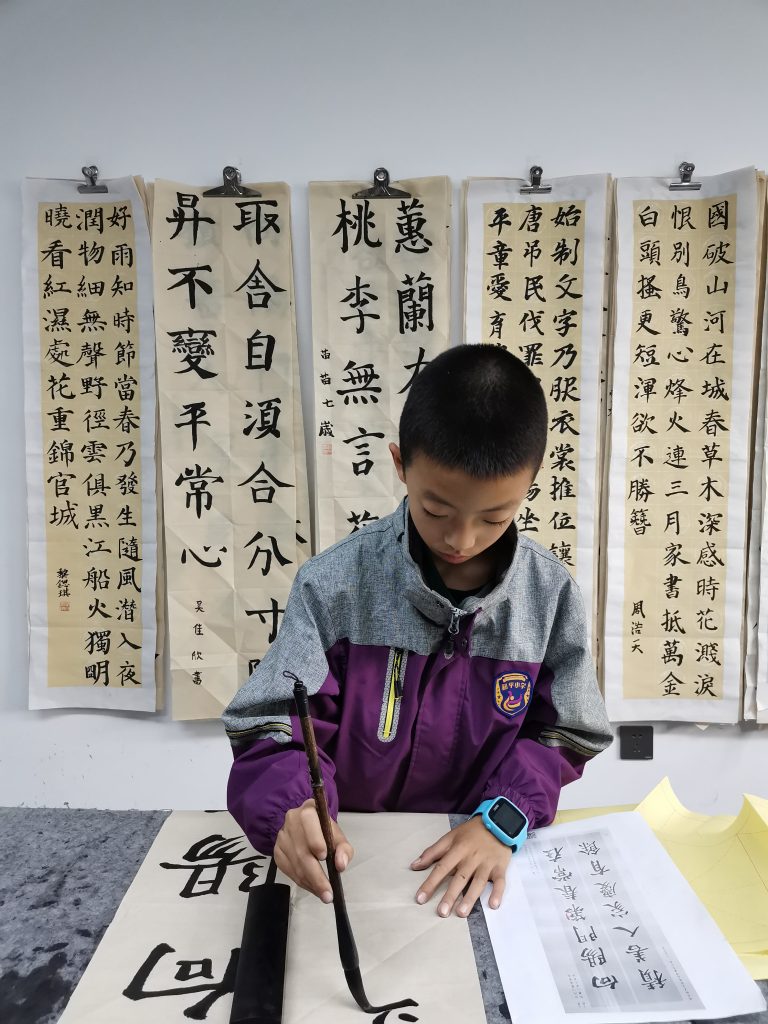 好雨知時節當春乃發生隨風潛入夜
潤物細無聲野徑雲俱黑江船火獨明
曉看紅濕處花重錦官城
取舍自須合分寸
昇不變平常心
吴佳欣書
蕙蘭
桃李無言
苗苗七歲
始制文字乃服衣裳推位讓
唐吊民伐罪
坐
平章愛育
國破山河在城春草木深感時花濺淚
恨別鳥驚心烽火連三月家書抵萬金
白頭搔更短渾欲不勝簪
周浩天
和平小学
向陽
向陽門第春常在
積善人家慶有餘